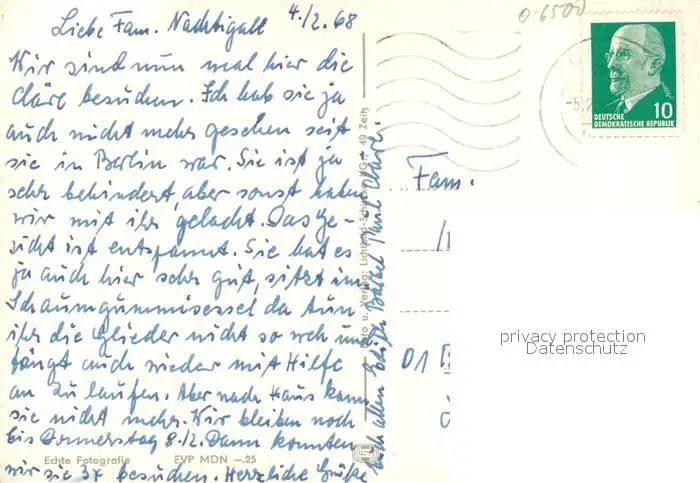 4./2. 68
Liebe Fam. Nachtigall
Wir sind nun mal hier die
Cläre besuchen. Ich hab sie ja
auch nicht mehr gesehen seit
sie in Berlin war. Sie ist ja
sehr behindert, aber sonst haben
wir mit ihr gelacht. Das Ge-
sicht ist entspannt. Sie hat es
ja auch hier sehr gut, sitzt im
Schaumgummisessel da tun
ihr die Glieder nicht so weh und
fängt auch wieder mit Hilfe
an zu laufen. Aber nach Haus kann
sie nicht mehr. Wir bleiben noch
bis Donnerstag 8./2. Dann konnten
wir sie 3x besuchen. Herzliche Grüße
Euch allen
Echte Fotografie EVP MDN –.25
Foto u. Verlag: Lichtbild- KG 49 Zeitz
0-6500
10
DEUTSCHE
DEMOKRATISCHE REPUBLIK
Fam.
privacy protection
Datenschutz